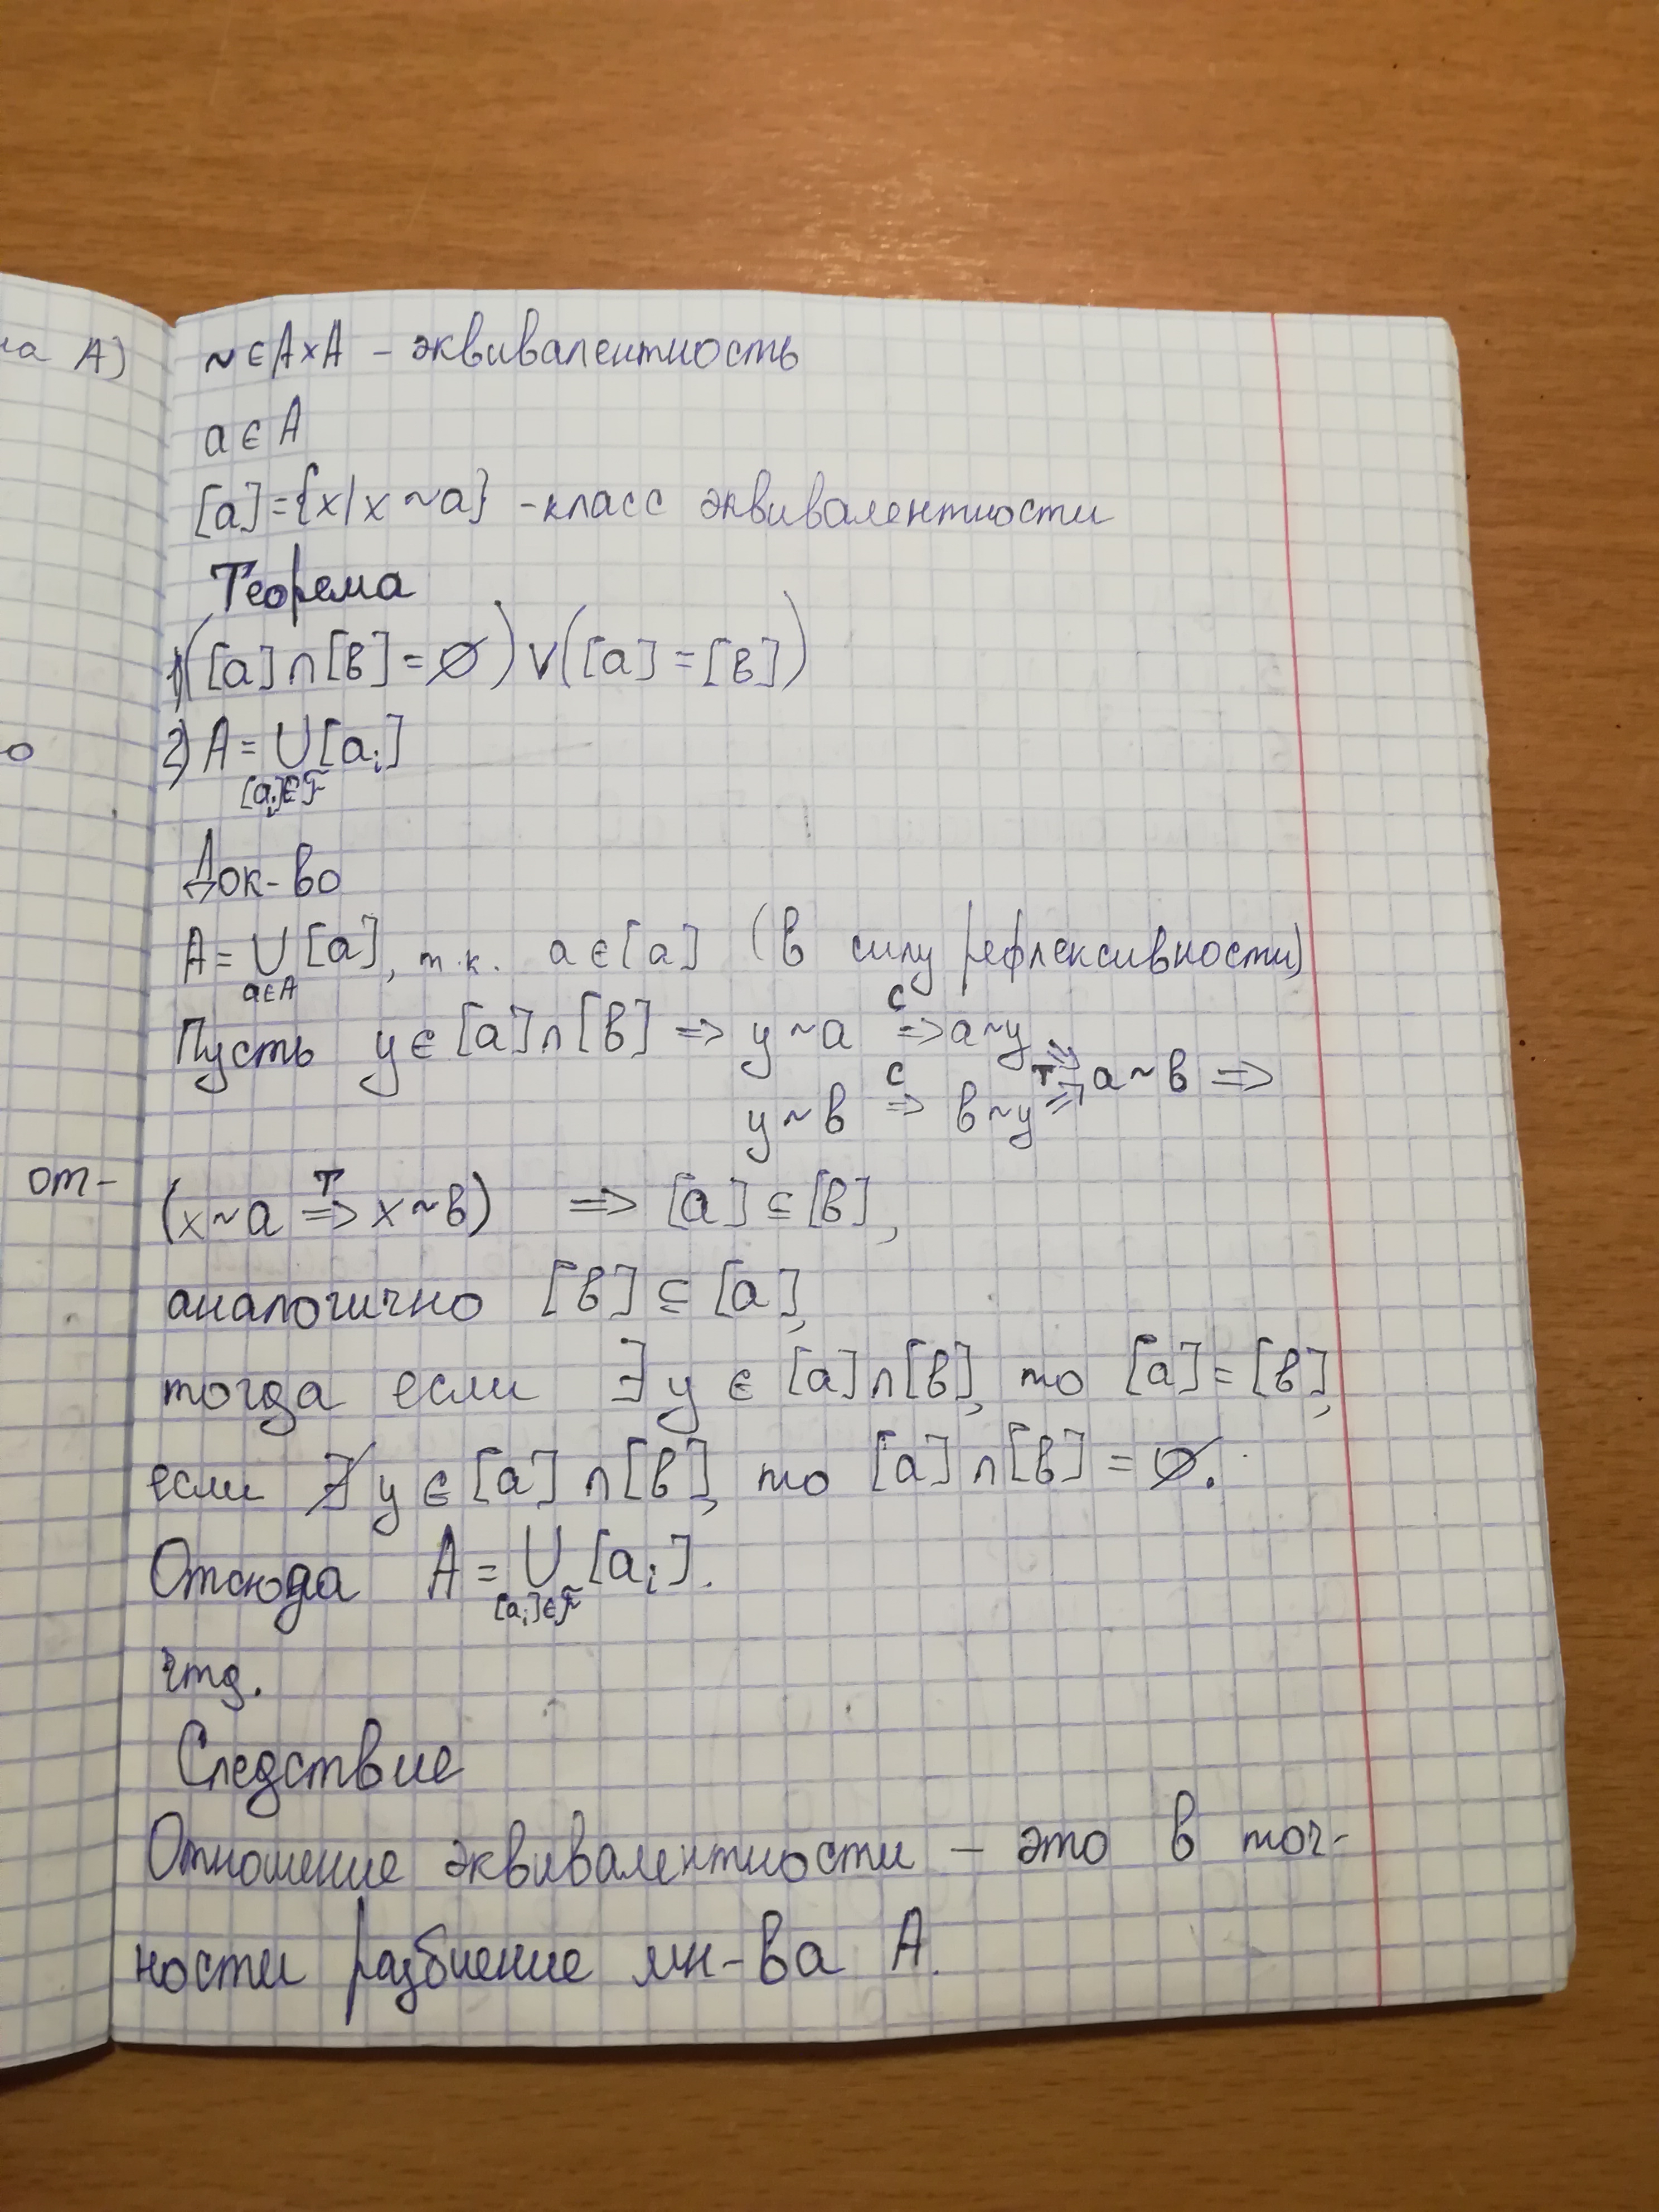 на А)
о
от-
~ ∈ A×A – эквивалентность
a ∈ A
[a]={x/x ~a} -класс эквивалентности
Теорема
1)([a]∩[в]=∅)∨([a]=[в])
2) A= ∪[aᵢ]
[aᵢ]∈F̃
Док-во
A= ∪[a], т.к. a∈[a] (в силу рефлексивности)
a∈A
Пусть y∈[a]∩[в] => y~a =>ᶜ a~y
y~в =>ᶜ в~y =>ᵀ a~в =>
(x~a =>ᵀ x~в) => [a]⊆[в],
аналогично [в]⊆[a],
тогда если ∃y ∈ [a]∩[в], то [a]=[в],
если ∄ y∈[a]∩[в], то [a]∩[в]=∅.
Отсюда A= ∪[aᵢ].
[aᵢ]∈F̃
чтд.
Следствие
Отношение эквивалентности – это в точ-
ности разбиение мн-ва А.